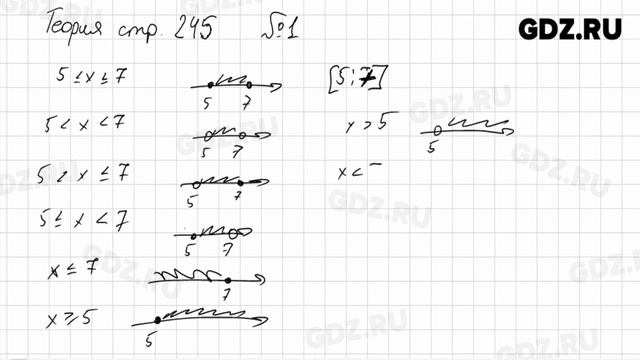 Теория стр. 245 №1
GDZ.RU
5 ≤ x ≤ 7
5 7
[5;7]
5 < x < 7
5 7
x > 5
5
5 < x ≤ 7
5 7
x <
5 ≤ x < 7
5 7
x ≤ 7
7
x ≥ 5
5
GDZ.RU
GDZ.RU
GDZ.RU
GDZ.RU
GDZ.RU
GDZ.RU
GDZ.RU